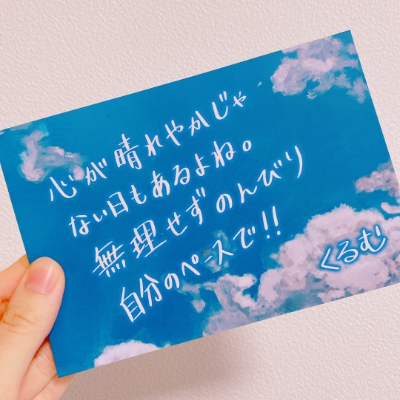 心が晴れやかじゃ
ない日もあるよね。
無理せずのんびり
自分のペースで!!
くるむ